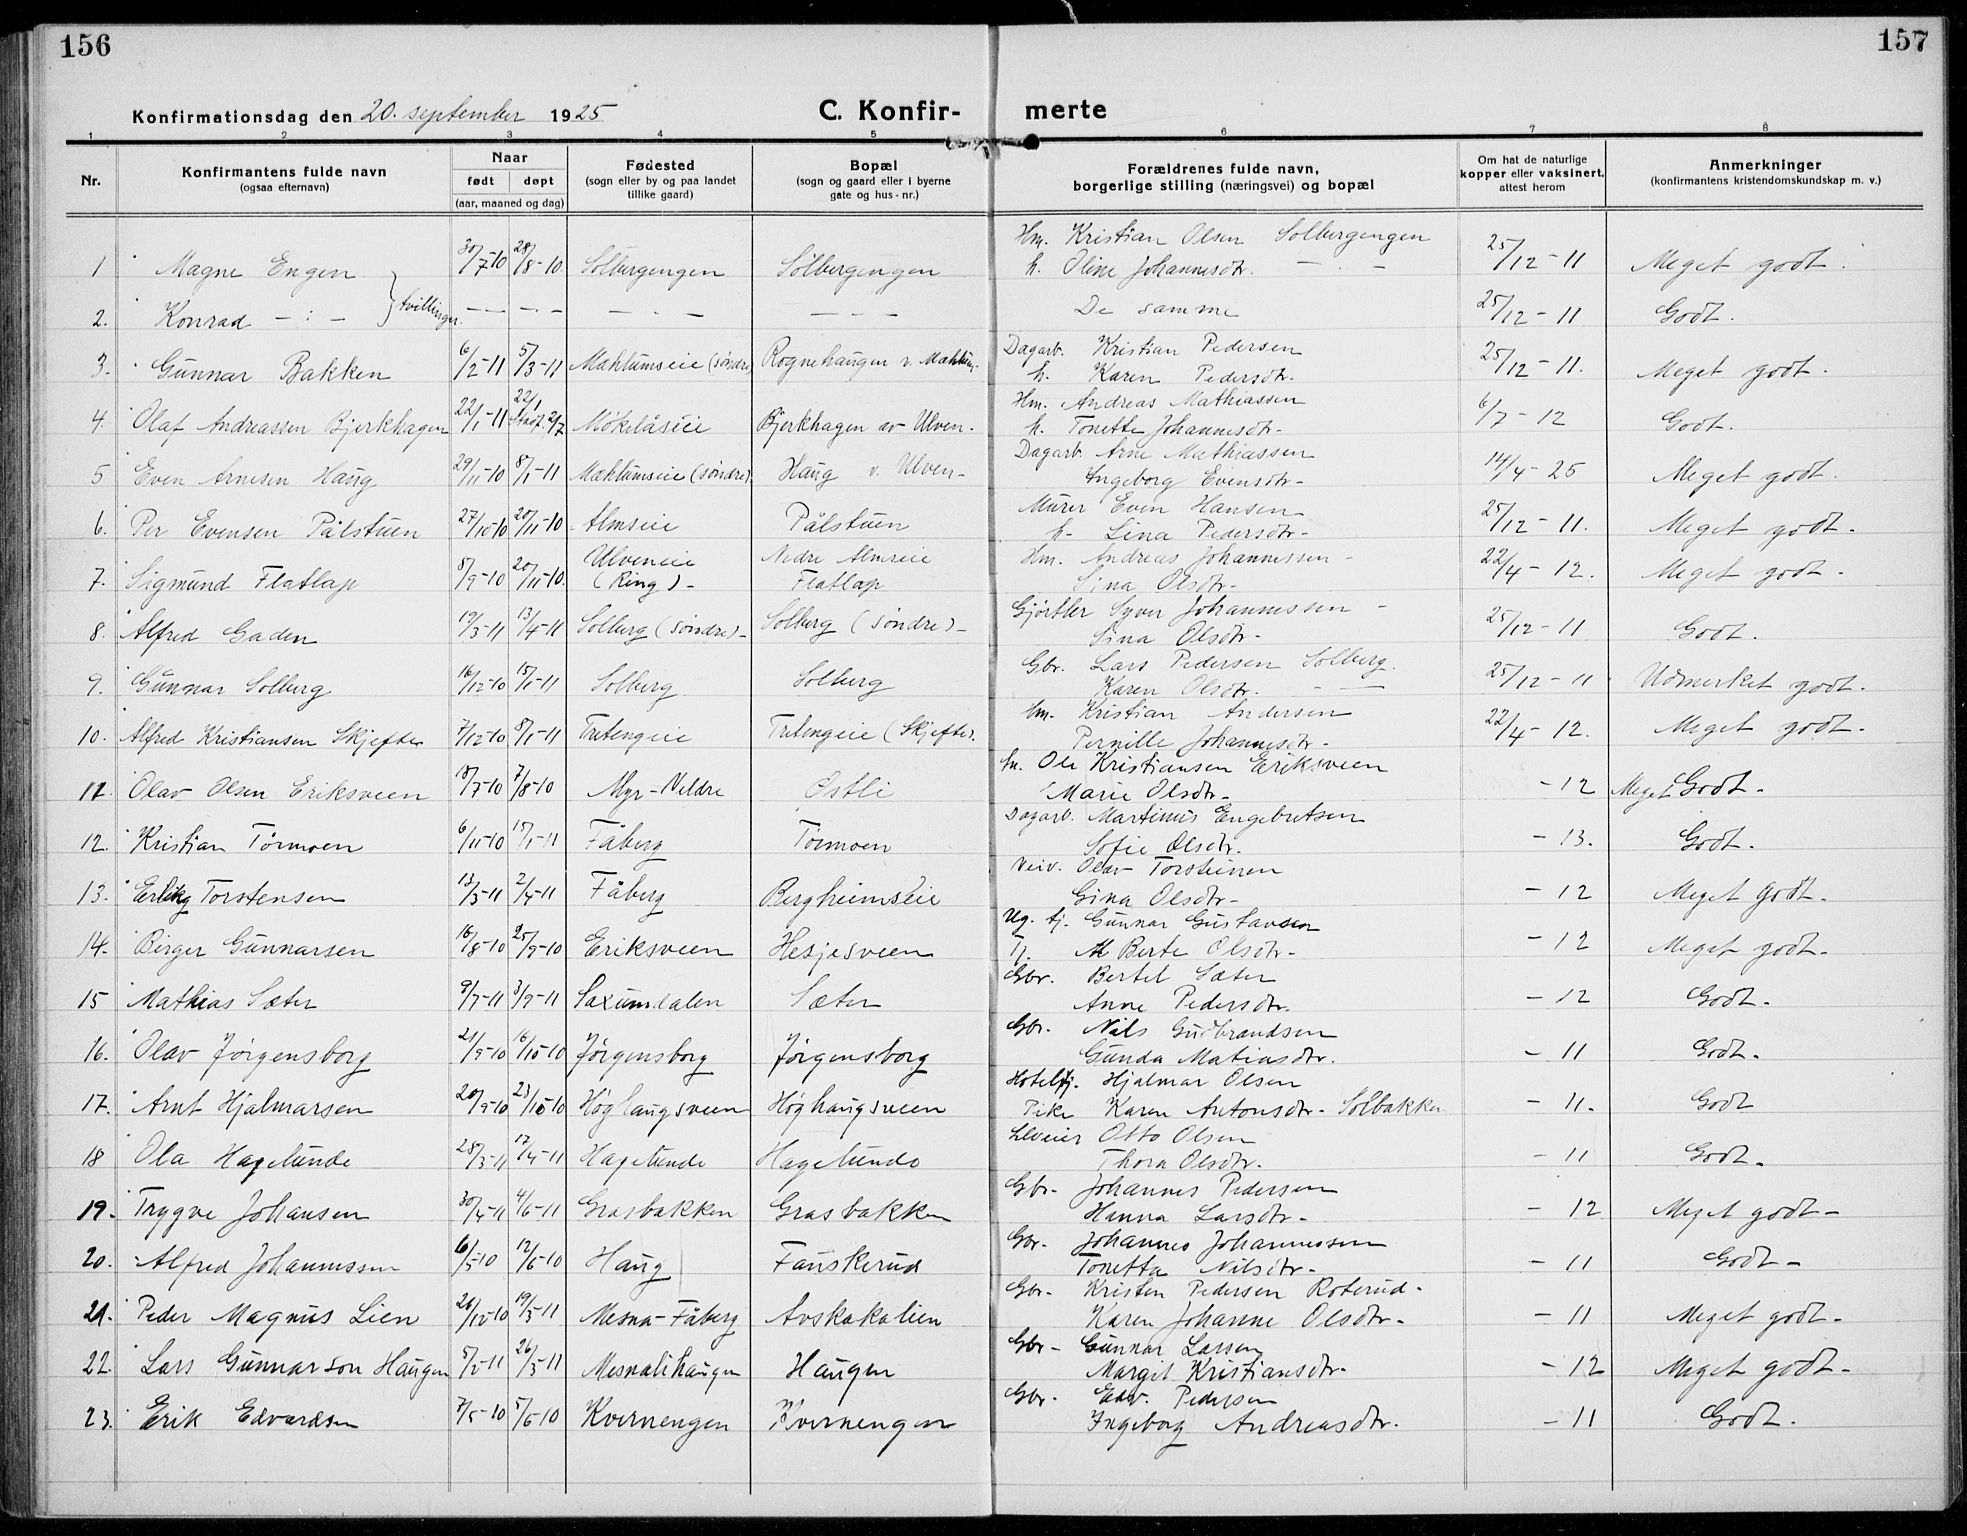 156
157
Konfirmationsdag den 20. september 1925
C. Konfir- merte
1 2 3 4 5 6 7 8
Nr.
Konfirmantens fulde navn
(ogsaa efternavn)
Naar
født døpt
(aar, maaned og dag)
Fødested
(sogn eller by og paa landet
tillike gaard)
Bopæl
(sogn og gaard eller i byerne
gate og hus-nr.)
Forældrenes fulde navn,
borgerlige stilling (næringsvei) og bopæl
Om hat de naturlige
kopper eller vaksinert,
attest herom
Anmerkninger
(konfirmantens kristendomskundskap m. v.)
Hm. Kristian Olsen Solbergengen
1 Magne Engen } tvillinger. 30/7-10 28/8-10 Solbergengen Solbergengen h. Oline Johannesdtr. — . — 25/12-11 Meget godt.
2. Konrad — : — — — — . — — . — — — — De samme 25/12-11 Godt.
Dagarb. Kristian Pedersen
3. Gunnar Bakken 6/2-11 5/3-11 Mæhlumseie (søndre) Rognehaugen v. Mæhlum. h. Karen Pedersdtr. 25/12-11. Meget godt.
Hm. Andreas Mathiassen
4. Olaf Andreassen Bjerkhagen 22/1-11 22/1 2/7 Møkelåseie Bjerkhagen av Ulven. h. Tonette Johannesdtr. 6/7-12 Godt.
Dagarb. Arne Mathiassen
5 Even Arnesen Haug 29/11-10 8/1-11 Mæhlumseie (søndre). Haug v. Ulven- Ingeborg Evensdtr- 14/4-25 Meget godt.
Murer Even Hansen
6. Per Evensen Pålstuen 27/10-10 20/11-10 Almseie Pålstuen h. Lina Pedersdtr- 25/12-11. Meget godt.
Hm. Andreas Johannessen -
7. Sigmund Flatlap 8/9-10 20/11-10. Ulveneie (Ring)- Nedre Almseie Flatlap Sina Olsdtr- 22/4-12. Meget godt.
Gjørtler Syver Johannessen -
8. Alfred Gaden 19/3-11 13/4-11 Solberg (søndre)- Solberg (søndre)- Sina Olsdtr- 25/12-11 Godt.
Gbr. Lars Pedersen Solberg.
9. Gunnar Solberg 16/12-10 15/1-11 Solberg Solberg Karen Olsdtr. — — 25/12-11 Udmerket godt.
Hm. Kristian Andersen
10. Alfred Kristiansen Skjefte 7/12-10 8/1-11 Tretengeie Tretengeie (Skjefte). Pernille Johannesdtr- 22/4-12. Meget godt.
h. Ole Kristiansen Eriksveen
11. Olav Olsen Eriksveen 18/7-10 7/8-10 Myr-Veldre Østli Marie Olsdtr- -12 Meget Godt.
Dagarb. Martinus Engebretsen
12. Kristian Tørmoen 6/11-10 15/1-11 Fåberg Tørmoen Sofie Olsdtr. -13. Godt.
Olav Torsteinsen
13. Erling Torstensen 13/3-11 2/4-11 Fåberg Bergheimseie Gina Olsdtr- -12 Meget godt.
Ug. tj. Gunnar Gustavsen
14. Birger Gunnarsen 16/8-10 25/9-10 Eriksveen Hesjesveen Tj. Berte Olsdtr- -12 Meget godt.
Gbr. Bertel Sæter
15 Mathias Sæter 9/7-11 3/9-11 Saxumdalen Sæter Anne Pedersdtr. -12 Godt.
Gbr. Nils Gudbrandsen
16. Olav Jørgensborg 21/9-10 16/10-10 Jørgensborg Jørgensborg Gunda Matiasdtr. -11 Godt.
Hotelltj. Hjalmar Olsen
17. Arnt Hjalmarsen 20/9-10 23/10-10 Høghaugsveen Høghaugsveen Pike Karen Antonsdtr- Solbakken -11. Godt
Otto Olsen
18 Ola Hagelunde 28/3-11 17/4-11 Hagelunde Hagelunde Thora Olsdtr. -11 Godt.
Gbr. Johannes Pedersen
19. Trygve Johansen 30/4-11 4/6-11 Grasbakken Grasbakken Hanna Larsdtr- -12 Meget godt-
Gbr. Johannes Johannessen
20. Alfred Johannessen 6/5-10 12/6-10 Haug Fauskerud Tonetta Nilsdtr- -11 Godt-
Gbr. Kristen Pedersen Roterud.
21. Peder Magnus Lien 26/12-10 19/3-11 Mesna-Fåberg Avskakalien Karen Johanne Olsdtr. -11 Meget godt.
Gbr- Gunnar Larsen
22. Lars Gunnarson Haugen 5/2-11 26/3-11 Mesnalihaugen Haugen Margit Kristiansdtr- -12 Meget godt-
Gbr. Edv. Pedersen
23. Erik Edvardsen 7/5-10 5/6-10 Kvernengen Kvernengen Ingeborg Andreasdtr. -11 Godt.